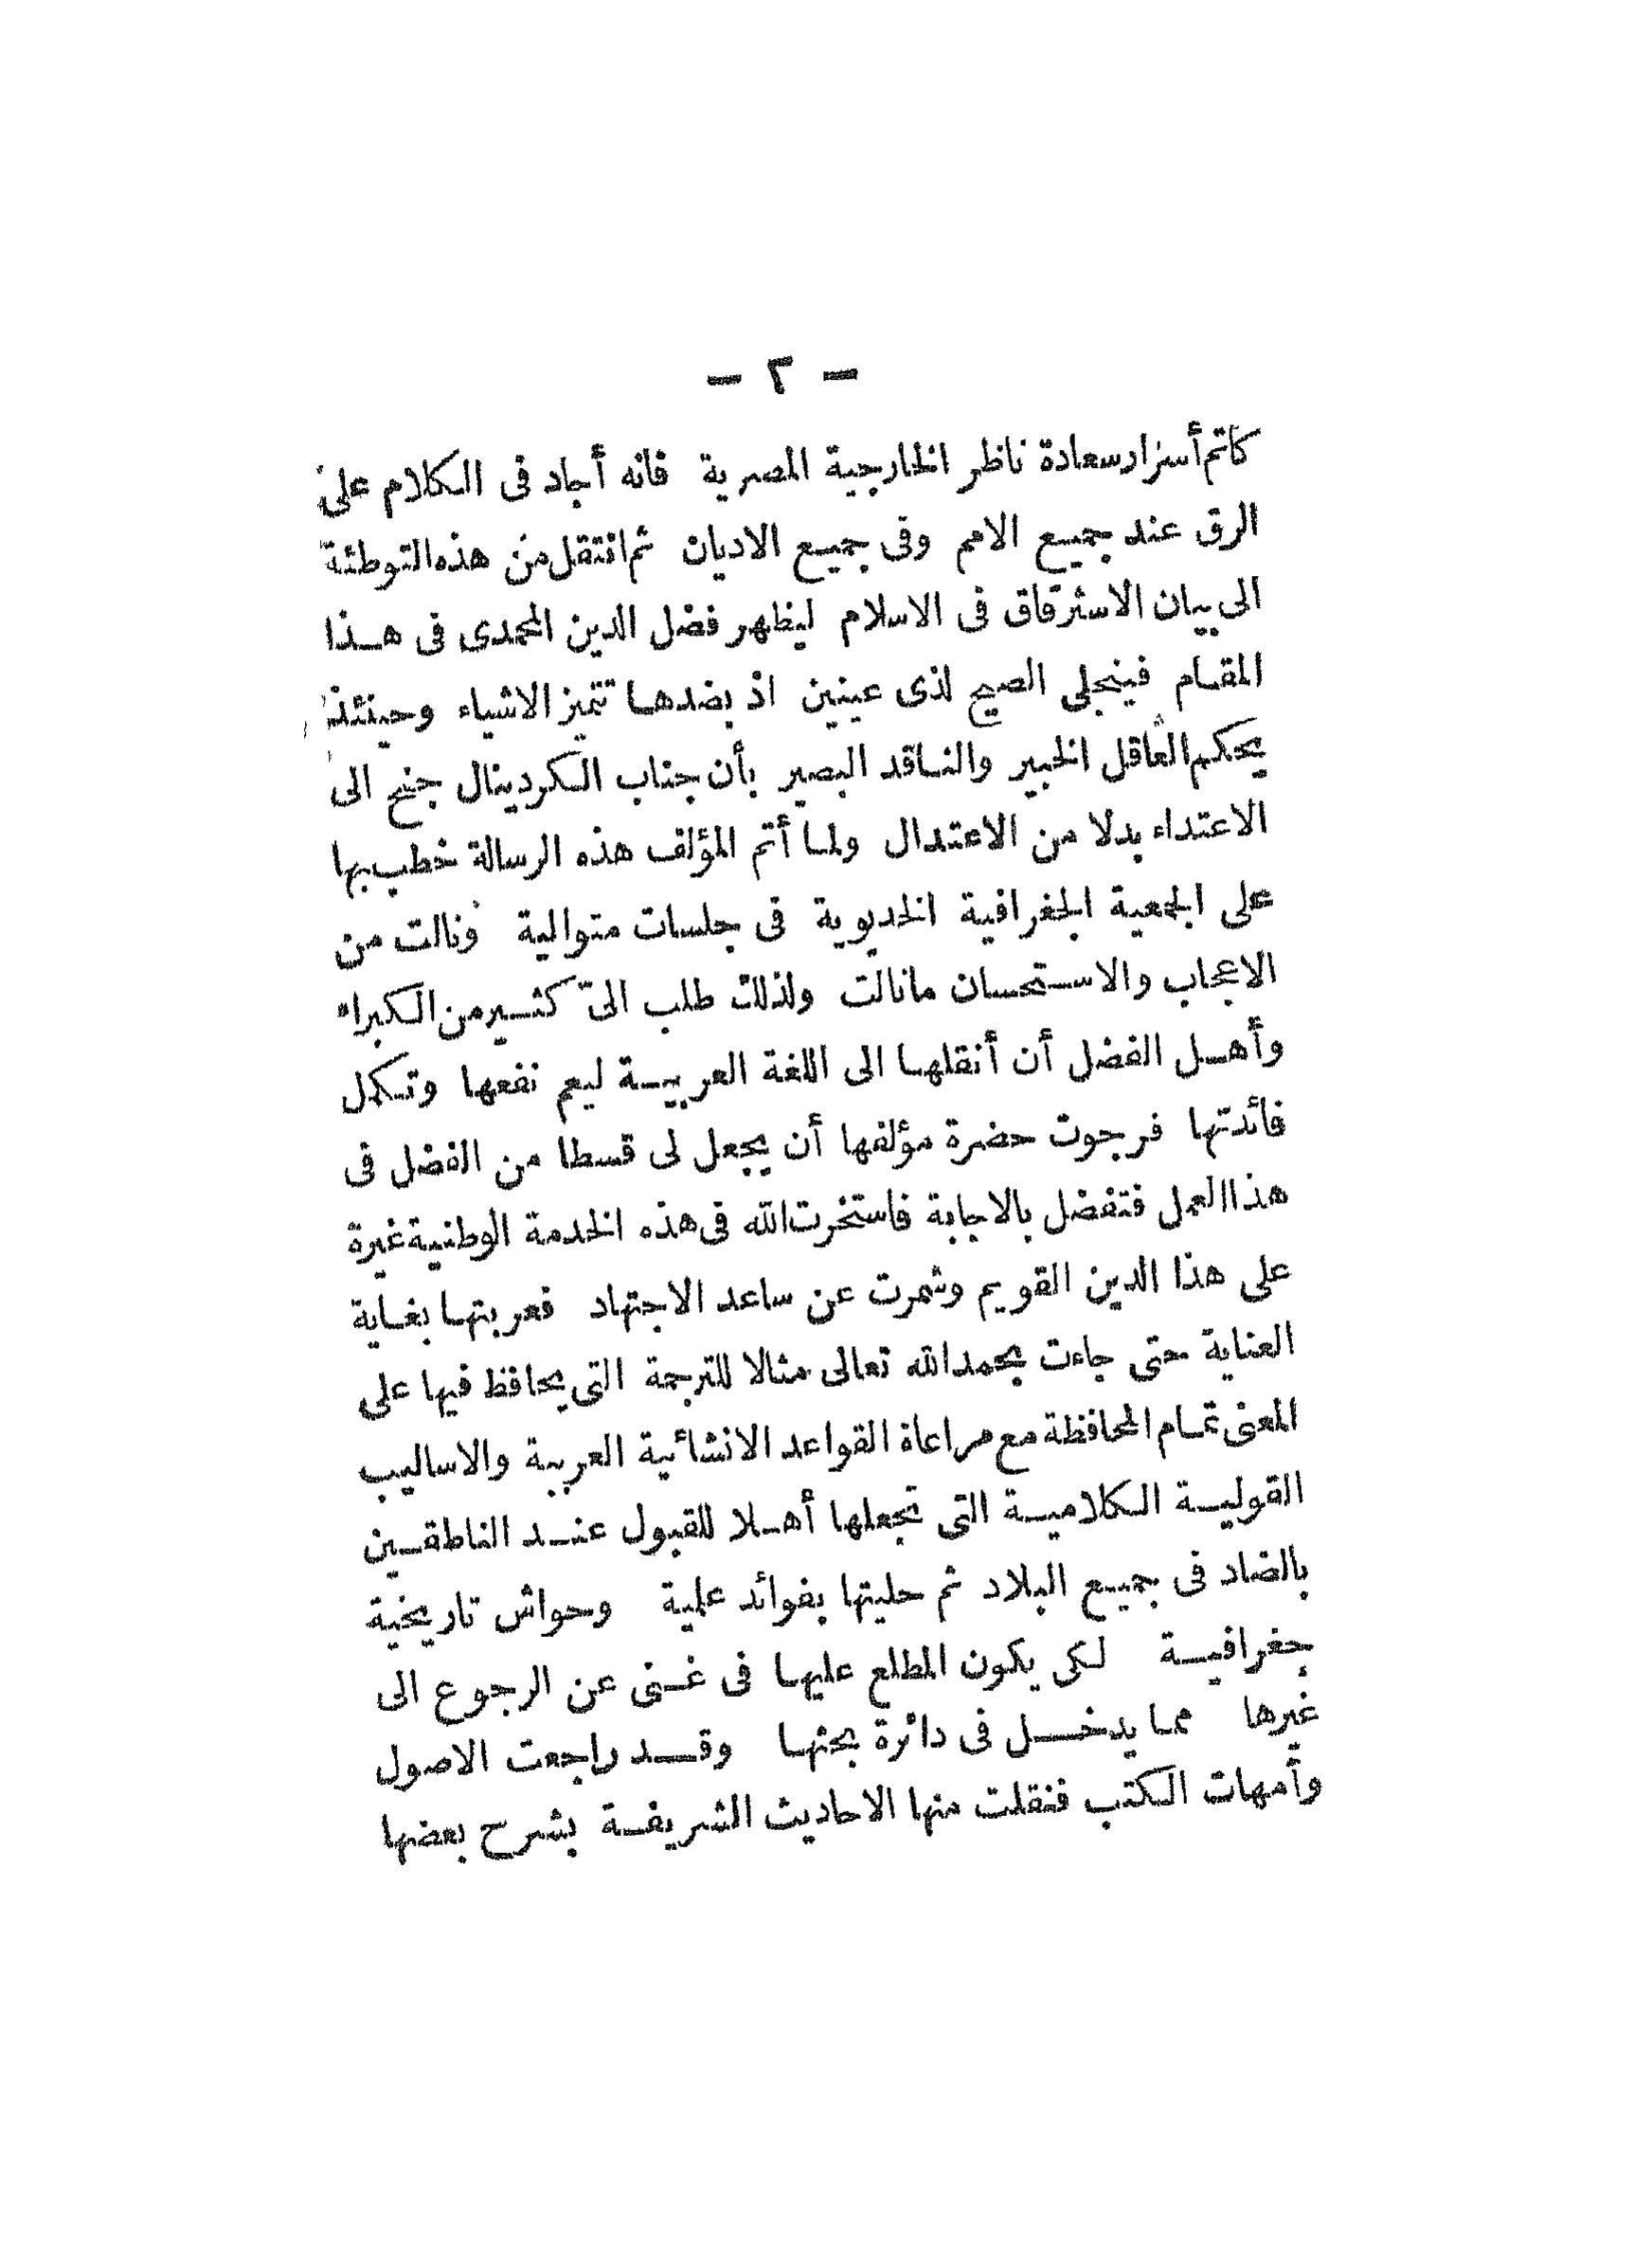 - ٢ -
كاتم أسرار سعادة ناظر الخارجية المصرية فانه أجاد فى الكلام على
الرق عند جميع الامم وفى جميع الاديان ثم انتقل من هذه التوطئة
الى بيان الاسترقاق فى الاسلام ليظهر فضل الدين المحمدى فى هذا
المقام فينجلى الصبح لذى عينين اذ بضدها تتميز الاشياء وحينئذ
يحكم العاقل الخبير والناقد البصير بأن جناب الكردينال جنح الى
الاعتداء بدلا من الاعتدال ولما أتم المؤلف هذه الرسالة خطب بها
على الجمعية الجغرافية الخديوية فى جلسات متوالية ونالت من
الاعجاب والاستحسان مانالت ولذلك طلب الىّ كثير من الكبراء
وأهل الفضل أن أنقلها الى اللغة العربية ليعم نفعها وتكمل
فائدتها فرجوت حضرة مؤلفها أن يجعل لى قسطا من الفضل فى
هذا العمل فتفضل بالاجابة فاستخرت الله فى هذه الخدمة الوطنية غيرة
على هذا الدين القويم وشمرت عن ساعد الاجتهاد فعربتها بغاية
العناية حتى جاءت بحمد الله تعالى مثالا للترجمة التى يحافظ فيها على
المعنى تمام المحافظة مع مراعاة القواعد الانشائية العربية والاساليب
القولية الكلامية التى تجعلها أهلا للقبول عند الناطقين
بالضاد فى جميع البلاد ثم حليتها بفوائد علمية وحواش تاريخية
جغرافية لكى يكون المطلع عليها فى غنى عن الرجوع الى
غيرها مما يدخل فى دائرة بحثها وقد راجعت الاصول
وأمهات الكتب فنقلت منها الاحاديث الشريفة بشرح بعضها